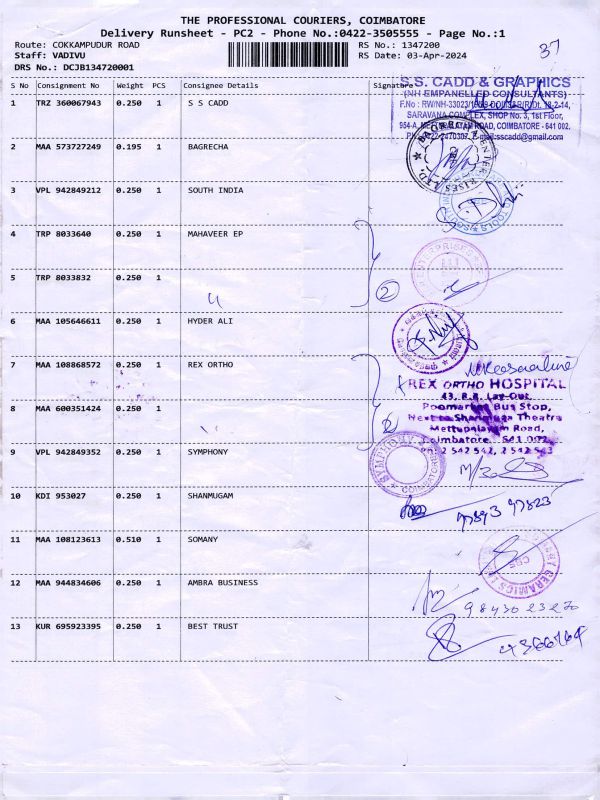 THE PROFESSIONAL COURIERS, COIMBATORE
Delivery Runsheet - PC2 - Phone No.:0422-3505555 - Page No.:1
Route: COKKAMPUDUR ROAD RS No.: 1347200
Staff: VADIVU RS Date: 03-Apr-2024
DRS No.: DCJB134720001
37
S No Consignment No Weight PCS Consignee Details Signature
S.S. CADD & GRAPHICS
(NH EMPANELLED CONSULTANTS)
SARAVANA COMPLEX, SHOP No. 3, 1st Floor,
ROAD, COIMBATORE - 641 002.
1 TRZ 360067943 0.250 1 S S CADD
2 MAA 573727249 0.195 1 BAGRECHA
3 VPL 942849212 0.250 1 SOUTH INDIA
4 TRP 8033640 0.250 1 MAHAVEER EP
2
5 TRP 8033832 0.250 1
"
6 MAA 105646611 0.250 1 HYDER ALI
7 MAA 108868572 0.250 1 REX ORTHO
REX ORTHO HOSPITAL
43, R.R. Lay-Out,
Poomarket Bus Stop,
Next to Shanmuga Theatre
Mettupalayam Road,
Coimbatore - 641 002
Ph: 2 542 542, 2 542 543
8 MAA 600351424 0.250 1
9 VPL 942849352 0.250 1 SYMPHONY
SYMPHONY
COIMBATORE
10 KDI 953027 0.250 1 SHANMUGAM
11 MAA 108123613 0.510 1 SOMANY
12 MAA 944834606 0.250 1 AMBRA BUSINESS
9843023270
13 KUR 695923395 0.250 1 BEST TRUST